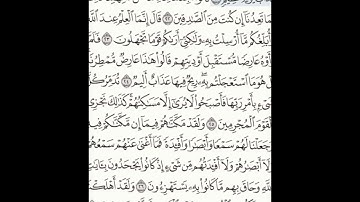 مَا تَعِدُنَآ إِن كُنتَ مِنَ ٱلصَّٰدِقِينَ ٢٢ قَالَ إِنَّمَا ٱلْعِلْمُ عِندَ ٱللَّهِ
أُبَلِّغُكُم مَّآ أُرْسِلْتُ بِهِۦ وَلَٰكِنِّيٓ أَرَىٰكُمْ قَوْمًا تَجْهَلُونَ ٢٣
أَوْهُ عَارِضًا مُّسْتَقْبِلَ أَوْدِيَتِهِمْ قَالُوا۟ هَٰذَا عَارِضٌ مُّمْطِرُنَا
لْ هُوَ مَا ٱسْتَعْجَلْتُم بِهِۦ رِيحٌ فِيهَا عَذَابٌ أَلِيمٌ ٢٤ تُدَمِّرُ كُ
ىْءٍۭ بِأَمْرِ رَبِّهَا فَأَصْبَحُوا۟ لَا يُرَىٰٓ إِلَّا مَسَٰكِنُهُمْ كَذَٰلِكَ نَجْزِى
لْقَوْمَ ٱلْمُجْرِمِينَ ٢٥ وَلَقَدْ مَكَّنَّٰهُمْ فِيمَآ إِن مَّكَّنَّٰكُمْ
جَعَلْنَا لَهُمْ سَمْعًا وَأَبْصَٰرًا وَأَفْـِٔدَةً فَمَآ أَغْنَىٰ عَنْهُمْ سَمْعُهُمْ
لَآ أَبْصَٰرُهُمْ وَلَآ أَفْـِٔدَتُهُم مِّن شَىْءٍ إِذْ كَانُوا۟ يَجْحَدُونَ بِـَٔايَٰتِ
للَّهِ وَحَاقَ بِهِم مَّا كَانُوا۟ بِهِۦ يَسْتَهْزِءُونَ ٢٦ وَلَقَدْ أَهْلَكْ